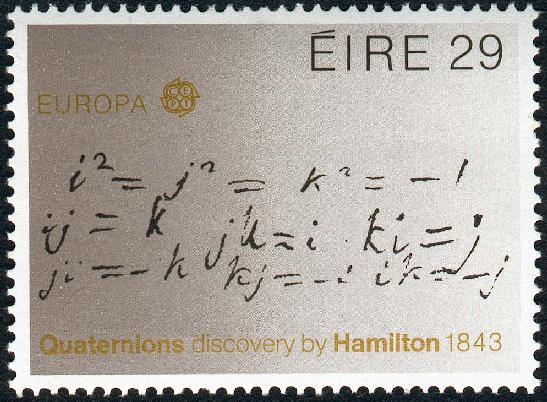 ÉIRE 29
EUROPA CEPT
i² = j² = k² = -1
ij = k jk = i ki = j
ji = -k kj = -i ik = -j
Quaternions discovery by Hamilton 1843